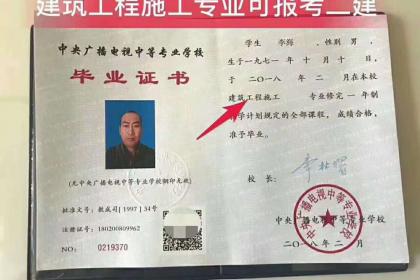 建筑工程施工专业可报考二建
中央广播电视中等专业学校
毕业证书
(无中央广播电视中等专业学校钢印无效)
批准文号:教成司[1997]34号
注册证号:180200809962
NO: 0219370
学生 李海 性别 男,
生于一九七一年 十月 十日,
于二〇一八 年 二 月在本校
建筑工程施工 专业修完 一 年制
学计划规定的全部课程,成绩合格,
准予毕业。
校 长:
中央广播电视中等专业学校
中央广播电视中等专业学校
二〇一八年二月